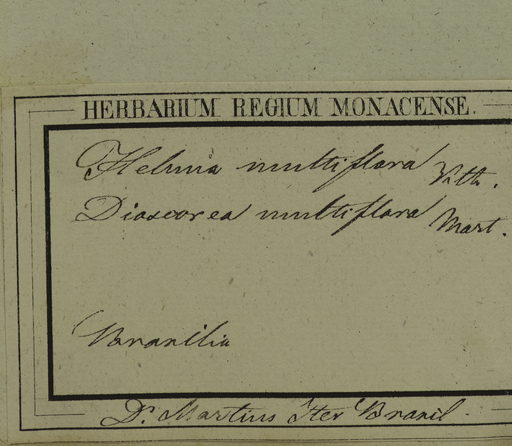 HERBARIUM REGIUM MONACENSE.
Helmia multiflora
Dioscorea multiflora Mart.
Brasilia
Dr. Martius Iter Brasil.